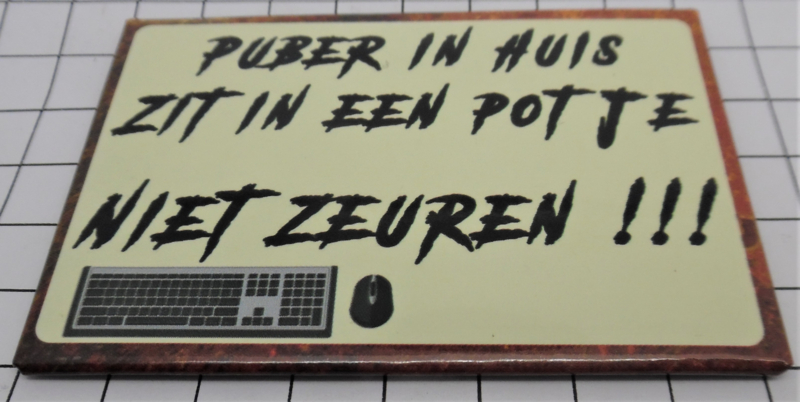 PUBER IN HUIS
ZIT IN EEN POTJE
NIET ZEUREN !!!